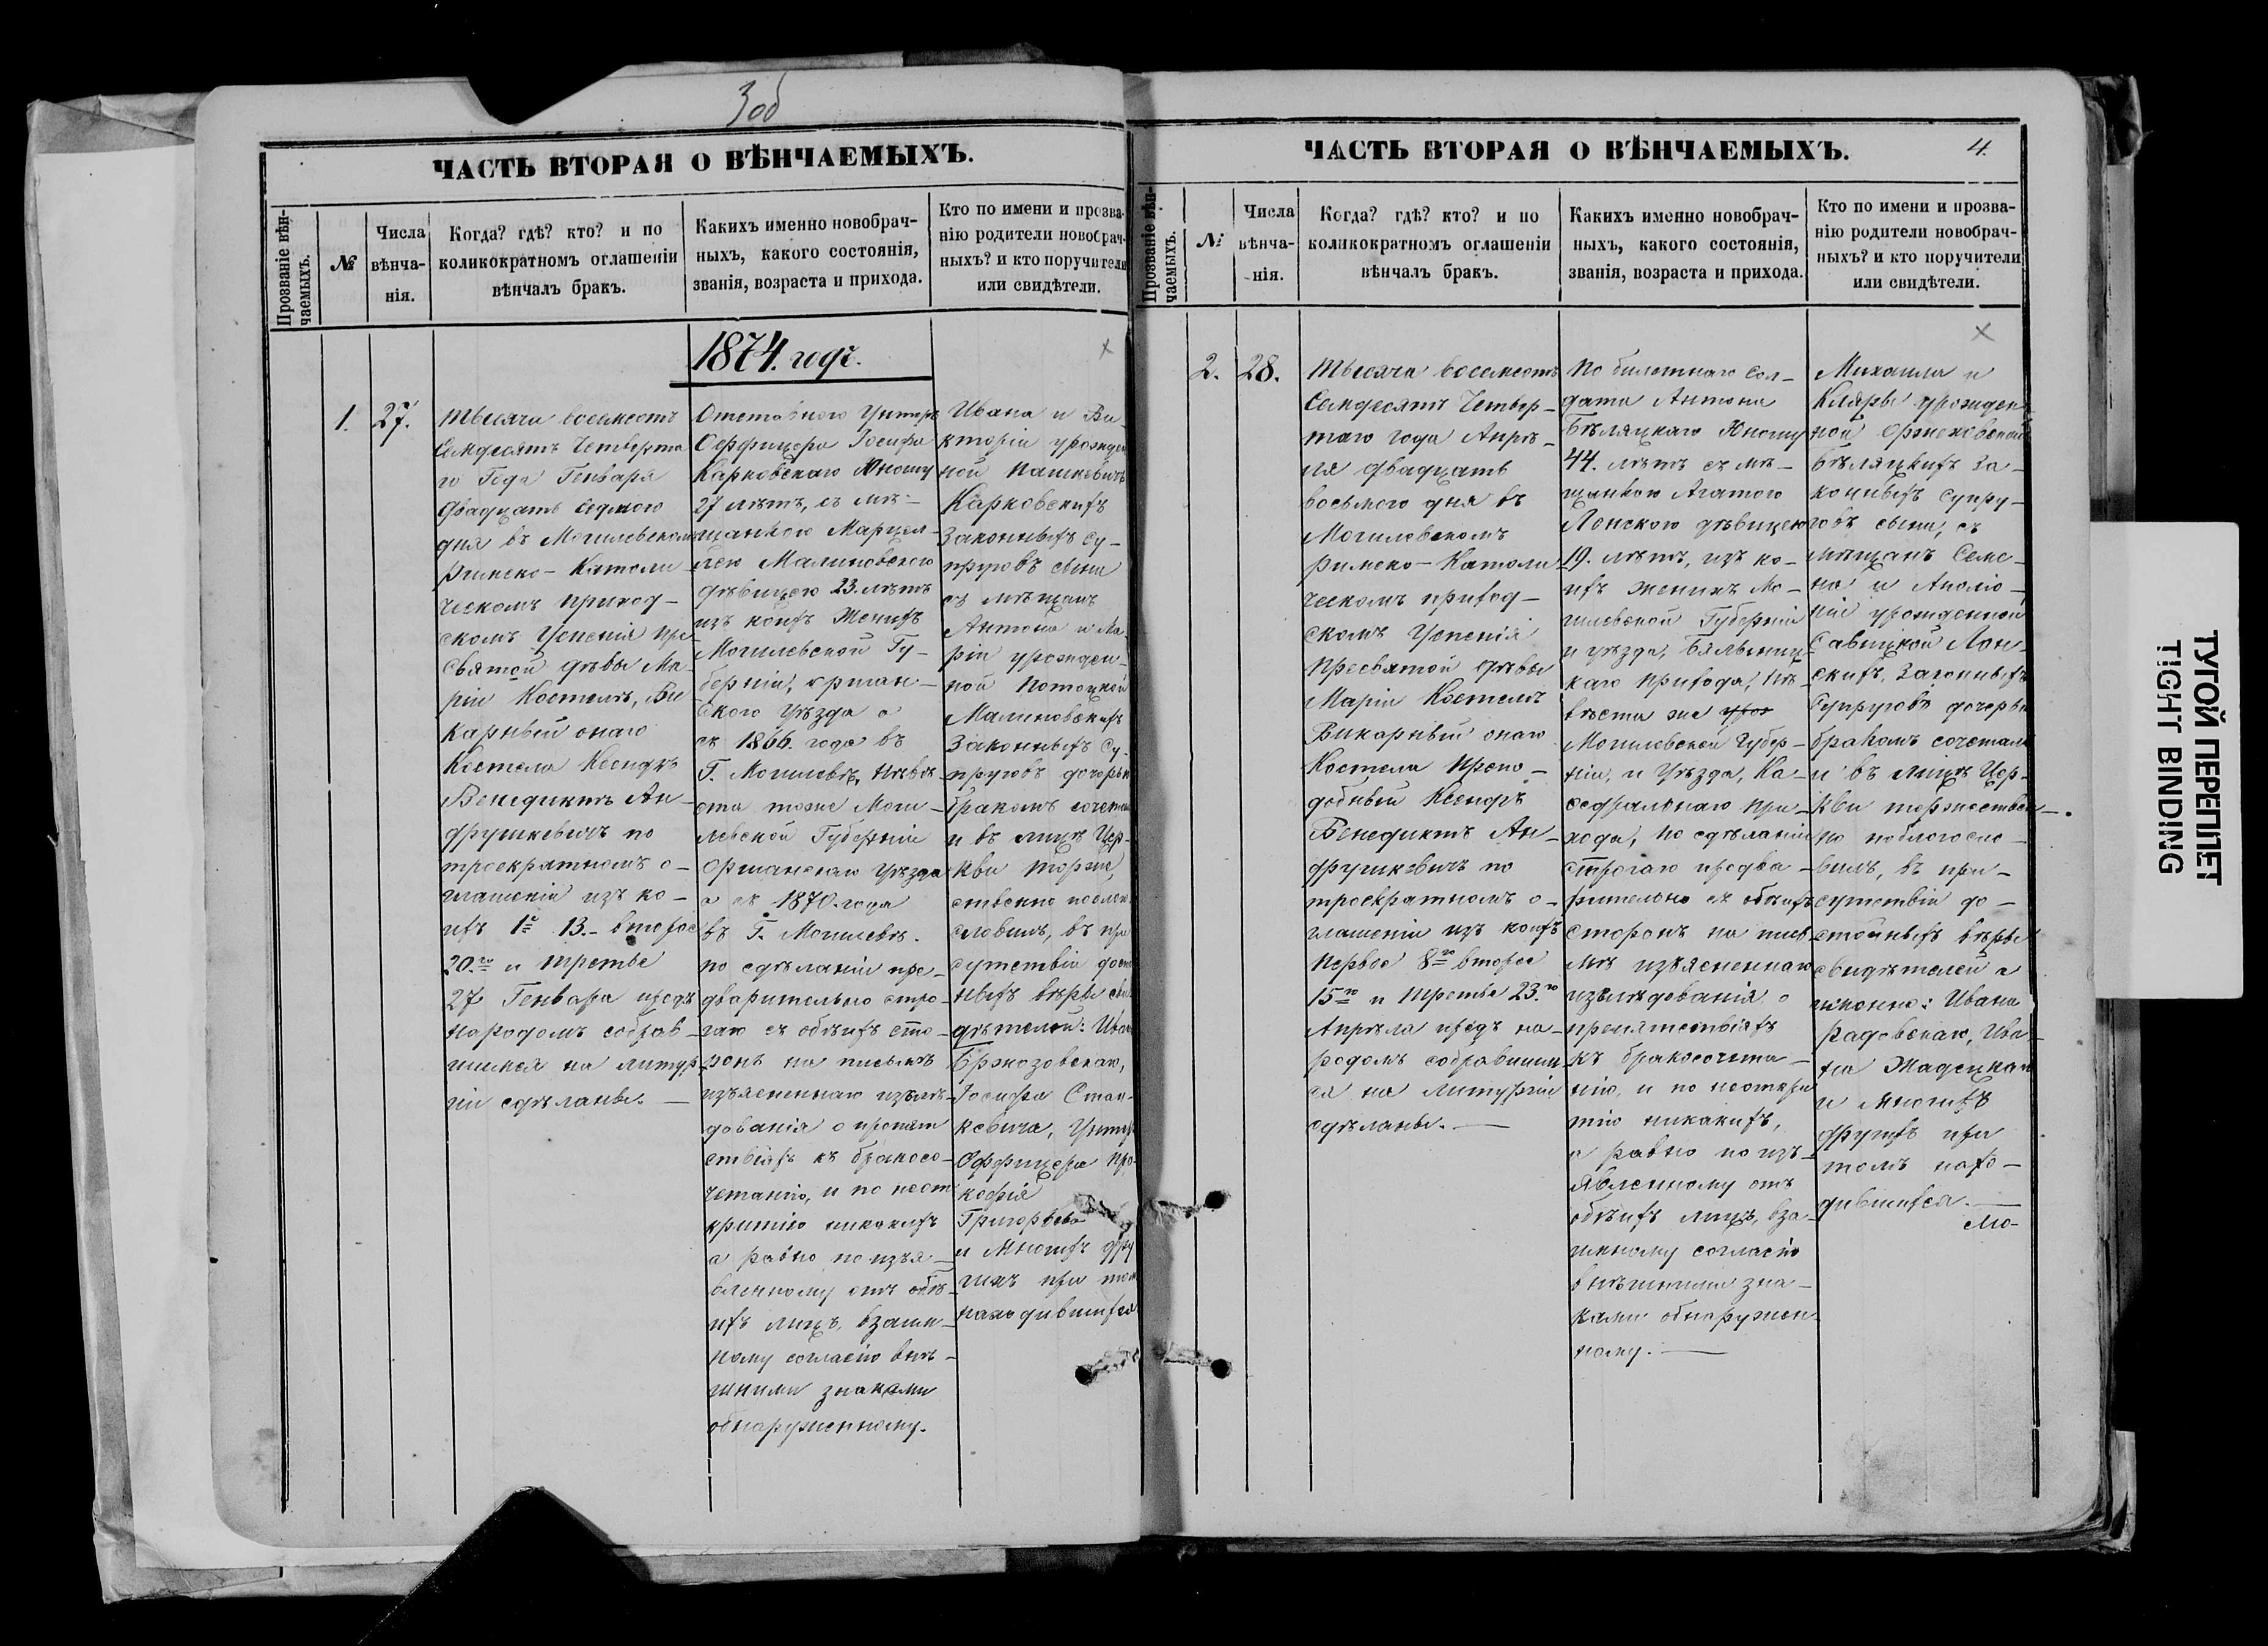 3об
ЧАСТЬ ВТОРАЯ О ВѢНЧАЕМЫХЪ.
Прозваніе вѣн-
чаемыхъ.
№
Числа
вѣнча-
нія.
Когда? гдѣ? кто? и по
коликократномъ оглашеніи
вѣнчалъ бракъ.
Какихъ именно новобрач-
ныхъ, какого состоянія,
званія, возраста и прихода.
Кто по имени и прозва-
нію родители новобрач-
ныхъ? и кто поручители
или свидѣтели.
1874. годъ.
1.
27.
Тысяча восемсотъ
Семдесятъ Четверта
го Года Генваря
Двадцать седмого
дня въ Могилевскомъ
Римско-Католи-
ческомъ приход-
скомъ Успенія Пре
святой Дѣвы Ма-
ріи Костелѣ, Ви
карный онаго
Костела Ксендзъ
Венедиктъ Ан-
друшкевичъ по
троекратномъ о-
глашеніи изъ ко-
ихъ 1е 13.- второе
20.го и третье
27 Генваря предъ
народомъ собрав-
шимся на литур
гіи сдѣланы. —
Отставного Унтеръ
Оффицера Іосифа
Карковскаго Юношу
27 лѣтъ, съ мѣ-
щанкою Марцел-
лею Малиновскою
дѣвицею 23. лѣтъ
изъ коихъ Женихъ
Могилевской Гу-
берніи, оршан-
ского Уѣзда а
съ 1866. года въ
Г. Могилевѣ, Невѣ-
ста тоже Моги-
левской Губерніи
Оршанскаго Уѣзда
а съ 1870. года
въ Г. Могилевѣ.
по сдѣланіи пре-
дварительно стро-
гаго съ обѣихъ сто-
ронъ на письмѣ
изъясненнаго изслѣ-
дованія о препят
ствіяхъ къ бракосо-
четанію, и по неот
крытію никакихъ
а равно по изъя-
вленному отъ обѣ-
ихъ лицъ, взаим-
ному согласію внѣ-
шними знаками
обнаруженному.
Ивана и Ви-
кторіи урожден
ной Пашкевичъ
Карковскихъ
Законныхъ Су-
пруговъ сына
съ мѣщанъ
Антона и Ма-
ріи урожден-
ной Потоцкой
Малиновскихъ
Законныхъ Су-
пруговъ дочерью
бракомъ сочеталъ
и въ лицѣ Цер-
кви торже
ственно поблаго
словилъ, въ при
сутствіи досто
ныхъ вѣры сви
дѣтелей: Ивана
Бржозовскаго,
Іосифа Стан-
кевича, Унтеръ
Оффицера Про-
кофія
Григорьева
и Многихъ дру
гихъ при томъ
находившихся
ЧАСТЬ ВТОРАЯ О ВѢНЧАЕМЫХЪ.
4.
Прозваніе вѣн-
чаемыхъ.
№
Числа
вѣнча-
нія.
Когда? гдѣ? кто? и по
коликократномъ оглашеніи
вѣнчалъ бракъ.
Какихъ именно новобрач-
ныхъ, какого состоянія,
званія, возраста и прихода.
Кто по имени и прозва-
нію родители новобрач-
ныхъ? и кто поручители
или свидѣтели.
2.
28.
Тысяча восемсотъ
Семдесятъ Четвер-
таго года Апрѣ-
ля Двадцать
восьмого дня въ
Могилевскомъ
Римско-Католи
ческомъ приход-
скомъ Успенія
Пресвятой Дѣвы
Маріи Костелѣ
Викарный онаго
Костела Препо-
добный Ксендзъ
Венедиктъ Ан-
друшкевичъ по
троекратномъ о-
глашеніи изъ коихъ
Первое 8го второе
15го и Третье 23.го
Апрѣля предъ на-
родомъ собравшим
ся на литургіи
сдѣланы. —
По билетнаго Сол-
дата Антона
Бѣляцкаго Юношу
44. лѣтъ съ мѣ-
щанкою Агатою
Лонскою дѣвицею
19. лѣтъ, изъ ко-
ихъ женихъ Мо-
гилевской Губерніи
и уѣзда, Бялынич-
каго прихода, Не-
вѣста же
Могилевской Губер-
ніи, и Уѣзда, Ка-
ѳедральнаго При-
хода, по сдѣланіи
строгаго предва-
рительно съ обѣихъ
сторонъ на пись
мѣ изъясненнаго
изслѣдованія о
препятствіяхъ
къ бракосочета-
нію, и по неоткры
тію никакихъ,
а равно по изъ-
явленному отъ
обѣихъ лицъ, вза-
имному согласію
внѣшними зна-
ками обнаружен-
ному. —
Михаила и
Клары урожден
ной Оржеховской
Бѣляцкихъ за-
конныхъ Супру-
говъ сына, съ
мѣщанъ Семе-
на и Аполо-
ніи урожденной
Савицкой Лон-
скихъ, Законныхъ
Супруговъ дочерью
бракомъ сочеталъ
и въ лицѣ Цер-
кви торжествен-
но поблагосло-
вилъ, въ при-
сутствіи до-
стойныхъ вѣры
свидѣтелей а
именно: Ивана
Радовскаго, Ива-
на Жадецкаго
и Многихъ
другихъ при
томъ нахо-
дившихся. —
Мо-
ТУГОЙ ПЕРЕПЛЕТ
TIGHT BINDING